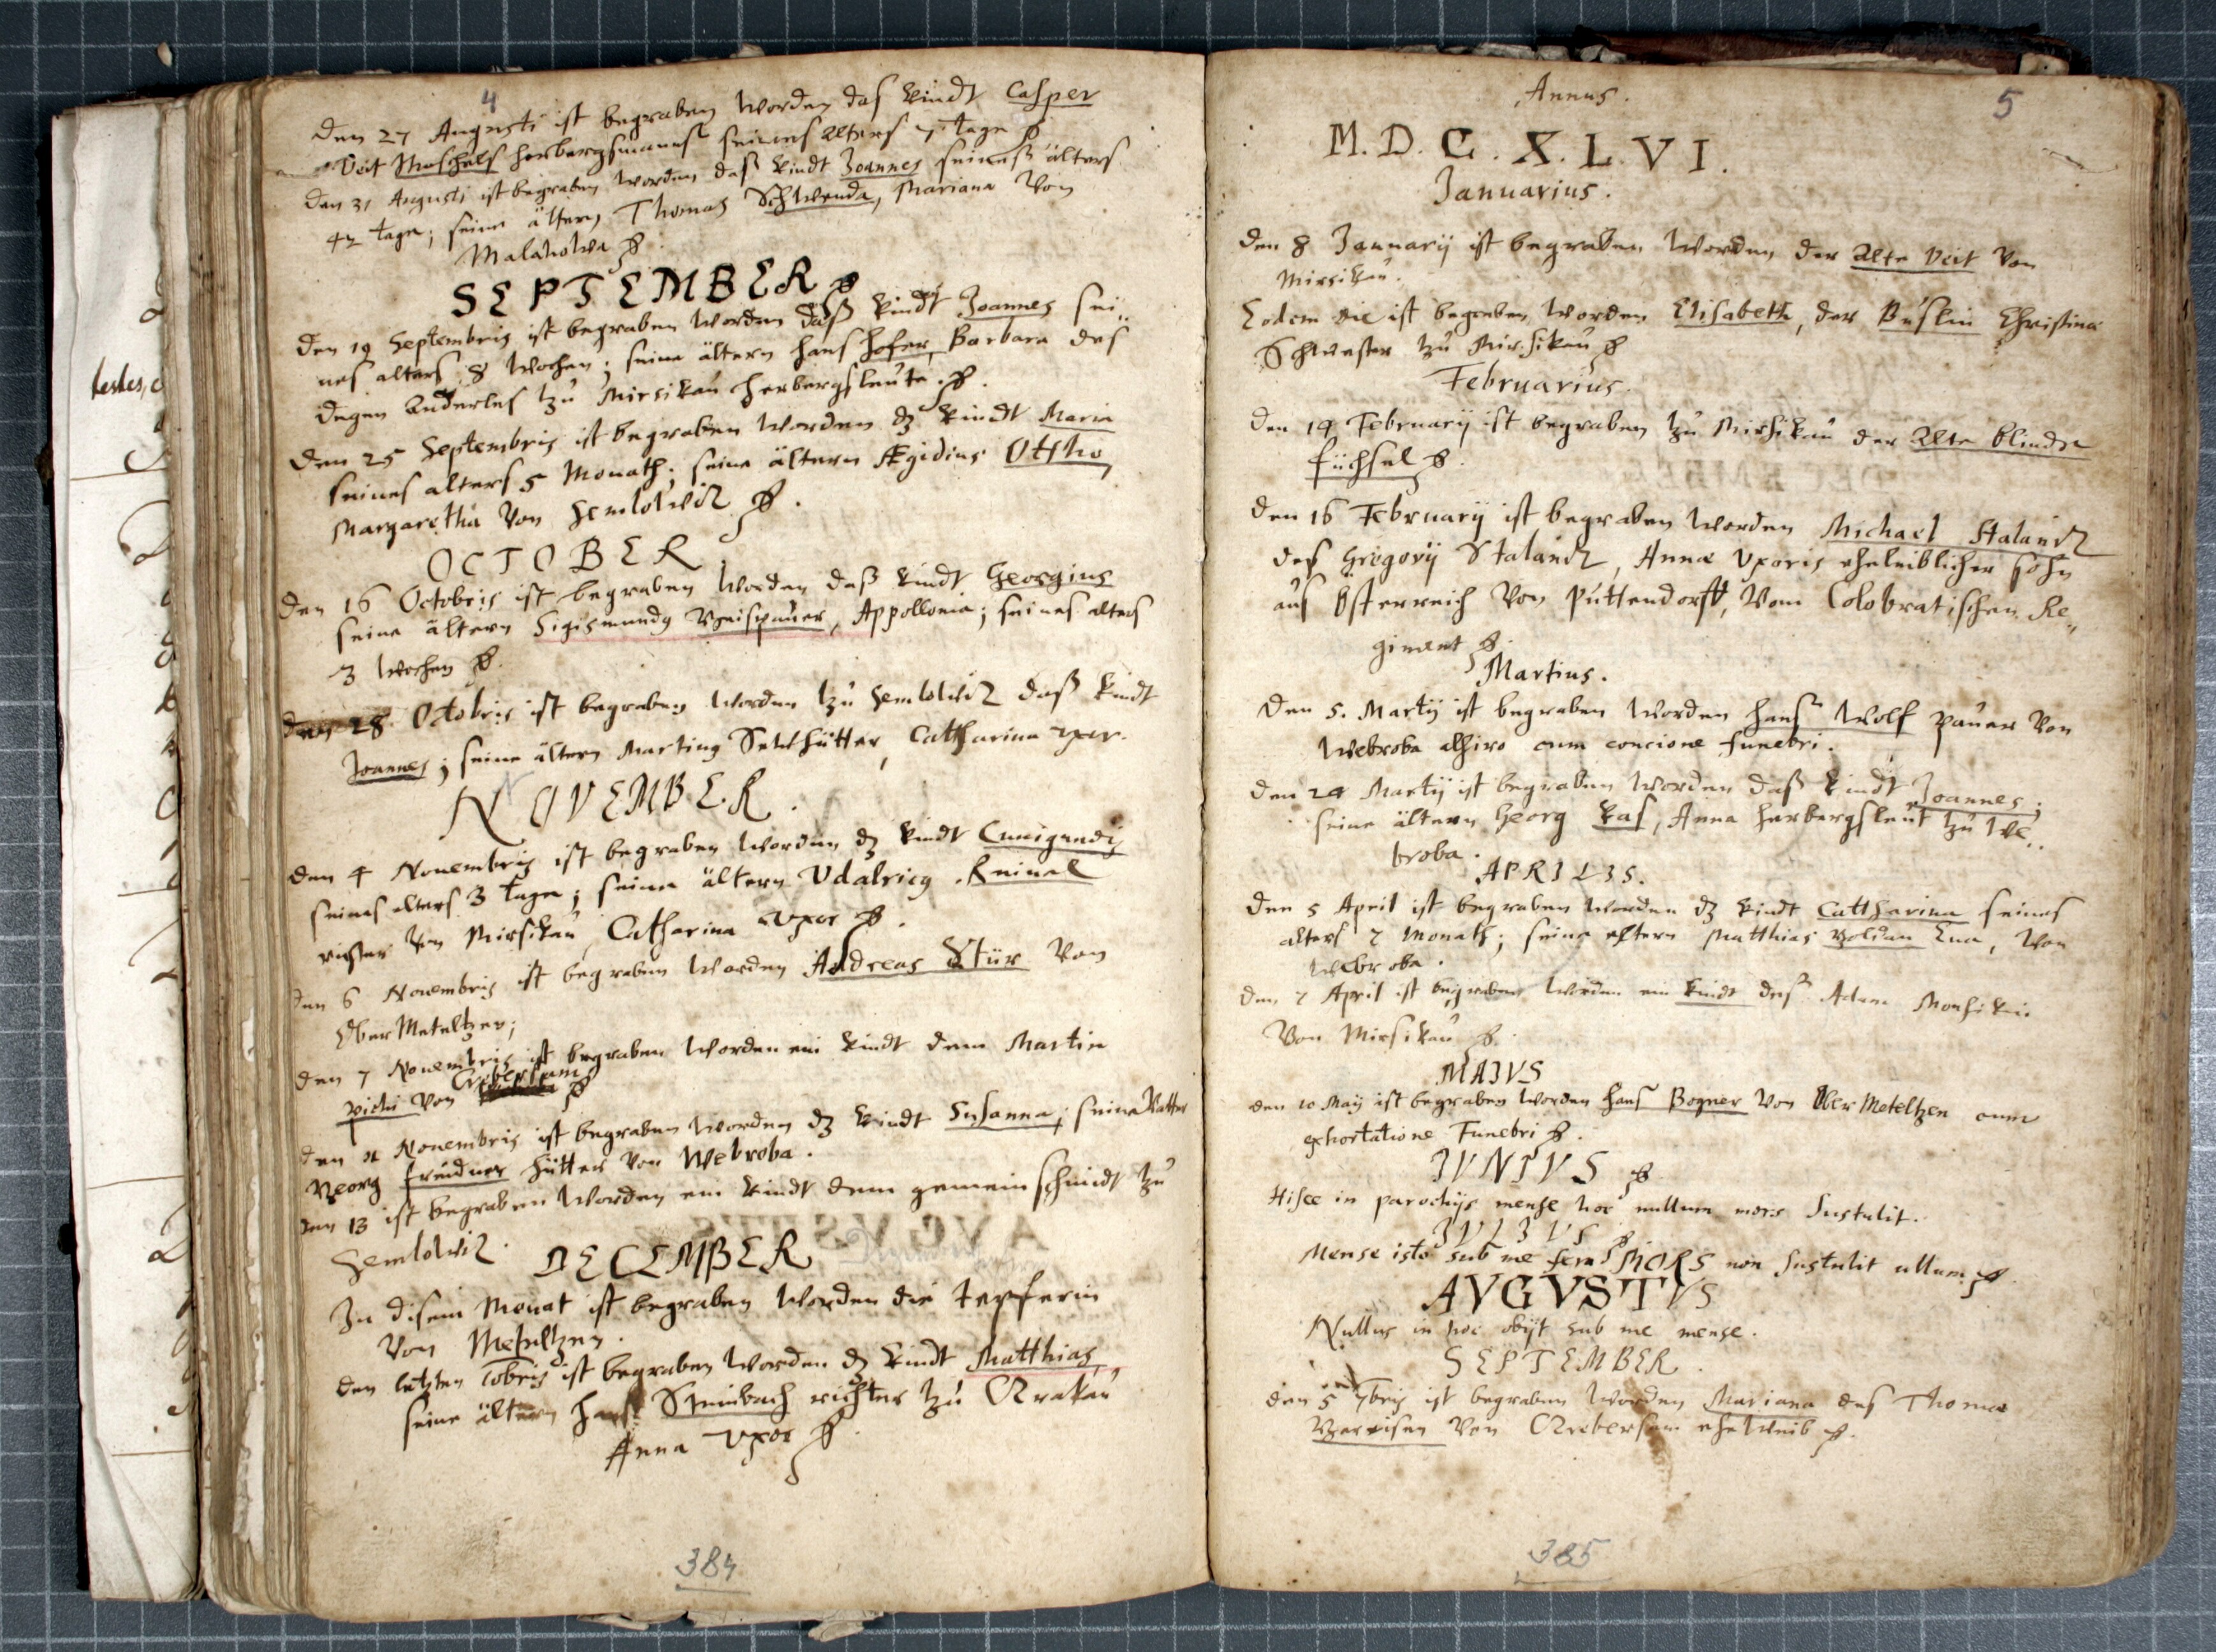 4
Den 27 Augusti ist begraben worden das kindt Casper
Veit Moschels herbergsmanns seines alters 7 tage
den 31 Augusti ist begraben worden daß kindt Joannes seineß älters
42 tage; seine ältern Thomas Schwenda, Mariana von
Malahowa
SEPTEMBER
Den 19 Septembris ist begraben worden daß kindt Joannes sei„
nes alters 8 wochen; seine ältern hans hofer, Barbara des
degen Anderles tzu Mirsikau herbergsleute.
Den 25 Septembris ist begraben worden dz kindt Maria
seines alters 5 Monath; seine ältern Ægidius Ottho
Margaretha von Semlowiz
OCTOBER
Den 16 Octobris ist begraben worden daß kindt Georgius
seine ältern Sigismundg, Appollonia; seines alters
3 wochen
28 Octobris ist begraben worden tzu Semlowiz daß kindt
Joannes; seine ältern Marting, Catharina uxor.
NOVEMBER.
den 4 Nouembris ist begraben worden dz kindt Cunigundis
seines alters 3 tage; seine ältern Udalricg Reinel
richter von Mirsikau, Catharina uxor
den 6 Nouembris ist begraben worden Andreas Stür von
Ober Meteltzen;
den 7 Nouembris ist begraben worden ein kindt dem Martin
von
den Nouembris ist begraben worden dz kindt Susanna; seine Vatter
Georg hütter von Webroba.
den 13 ist begraben worden ein kindt dem gemein schmidt tzu
Semlowiz.
DECEMBER
In disem Monat ist begraben worden die tepferin
von Meteltzen.
den letzten ist begraben worden dz kindt Matthias,
seine ältern hans Steinbach richter tzu
Anna uxor
384
5
Annus.
M. D. C. X. L. V I.
Januarius.
Den 8 January ist begraben worden der Alte Veit von
Mirsikau.
Eodem die ist begraben worden Elisabeth, der Christina
Schwester tzu Mirsikau
Februarius.
Den 14 February ist begraben tzu Mirsikau der Alte blinde
füchsel
Den 16 February ist begraben worden Michael Stalandz
des Gregory Stalandz, Annæ uxoris eheleiblicher sohn
aus Österreich von Puttendorff, vom Colobratischen Re„
giment
Martius.
Den 5. Martij ist begraben worden hans Wolf pauer von
Webroba alhiro cum concione funebri.
Den 24 Martij ist begraben worden daß kindt Joannes;
seine ältern Georg kas, Anna herbergsleut tzu We„
broba.
APRILIS.
Den 5 April ist begraben worden dz kindt Cattharina seines
alters 7 Monath; seine eltern Matthias, von
Webroba.
Den 7 April ist begraben worden ein kindt des Adam
von Mirsikau
MAIVS
den 10 Maij ist begraben worden hans Bogner von Ober Meteltzen cum
exhortatione Funebri
IVNIVS
Hisce in parochijs mense hoc nullum mors Sustulit.
IVLIVS
Mense isto sub me MORS non Sustulit ullum
AVGVSTVS
Nullus in hoc obijt sub me mense.
SEPTEMBER.
den 5 7bris ist begraben worden Mariana des Thomæ
von eheweib
385